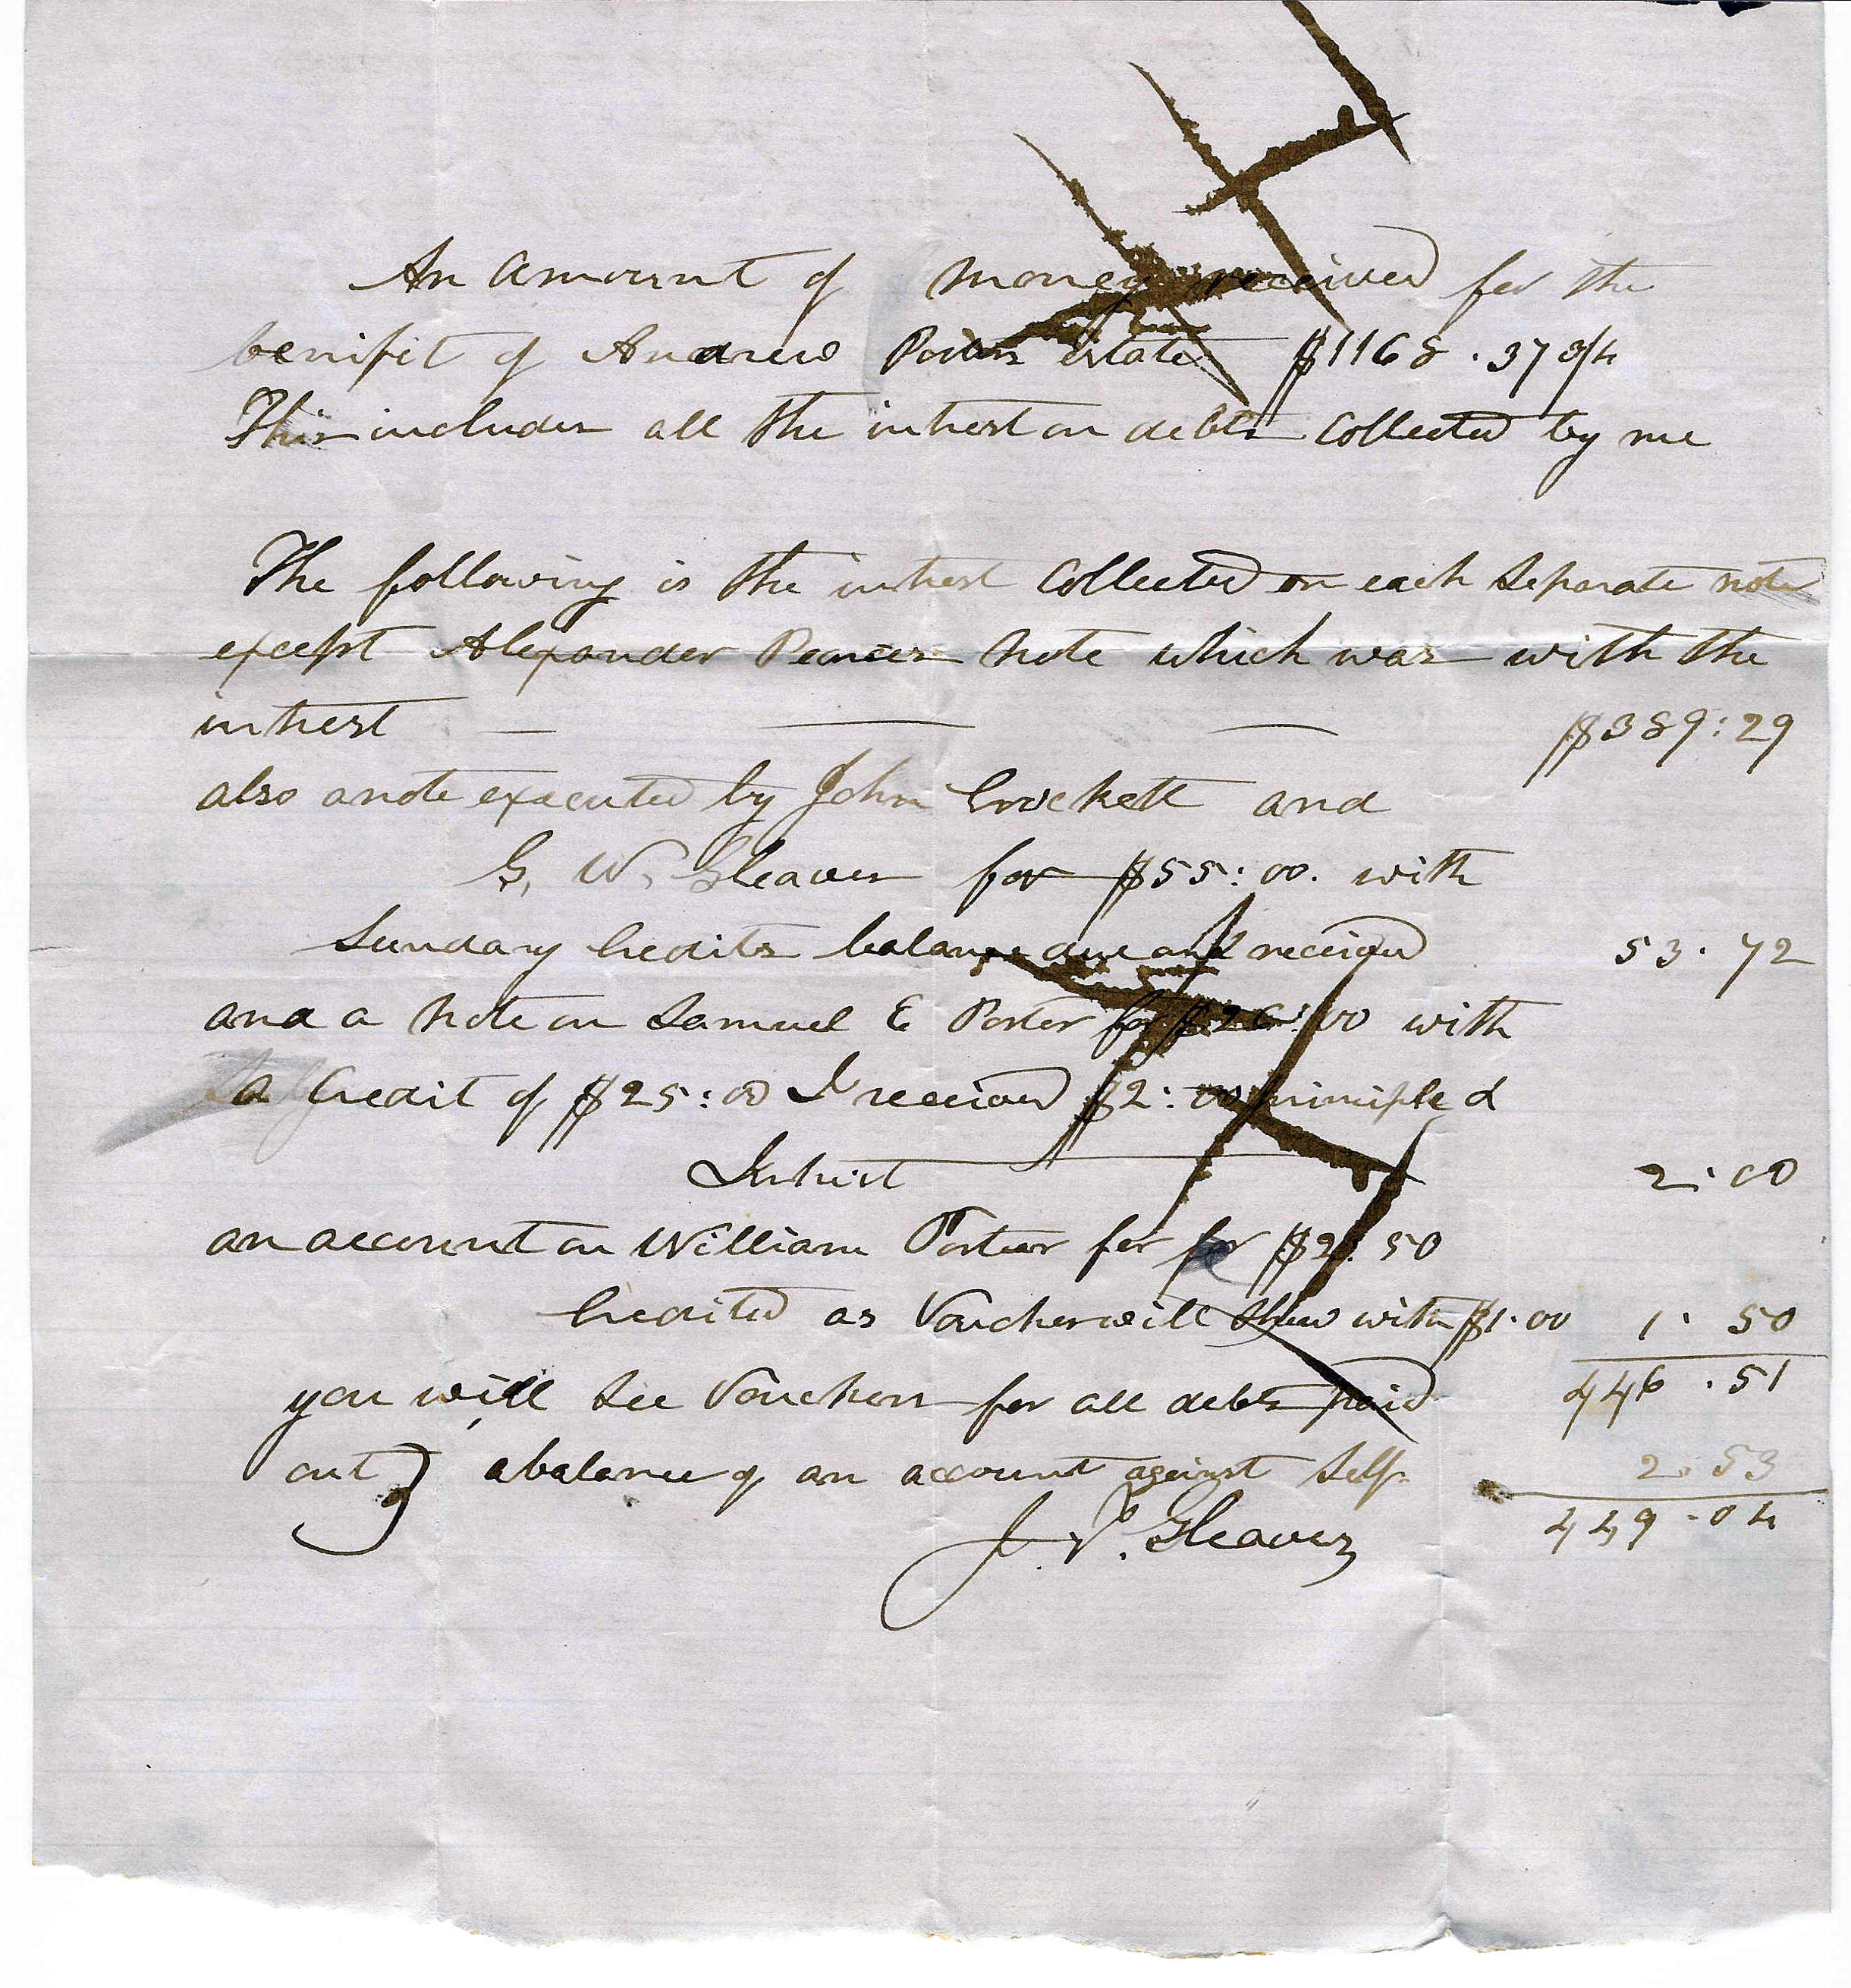 An Amount of Money received for the
benifit of Andrew Porters Estate $1168.37 3/4
This includes all the intrest on debts Collected by me
The following is the intrest Collected on each Separate note
except Alexander Pearces Note which was with the
intrest — — — $389:29
also a note executed by John Crockett and
G. W. Gleaves for $55:00. with
Sundary Credits balance due and received 53.72
and a Note on Samuel E Porter for $26:00 with
a Credit of $25:00 I received $2:00 principle &
Intrist 2:00
an account on William Porter for for $2.50
Credited as Voucher will Shew with $1.00 1.50
446.51
you will See Vouchers for all debts paid
out } a balance of an account against Self. 2.53
J. P. Gleaves 449.04